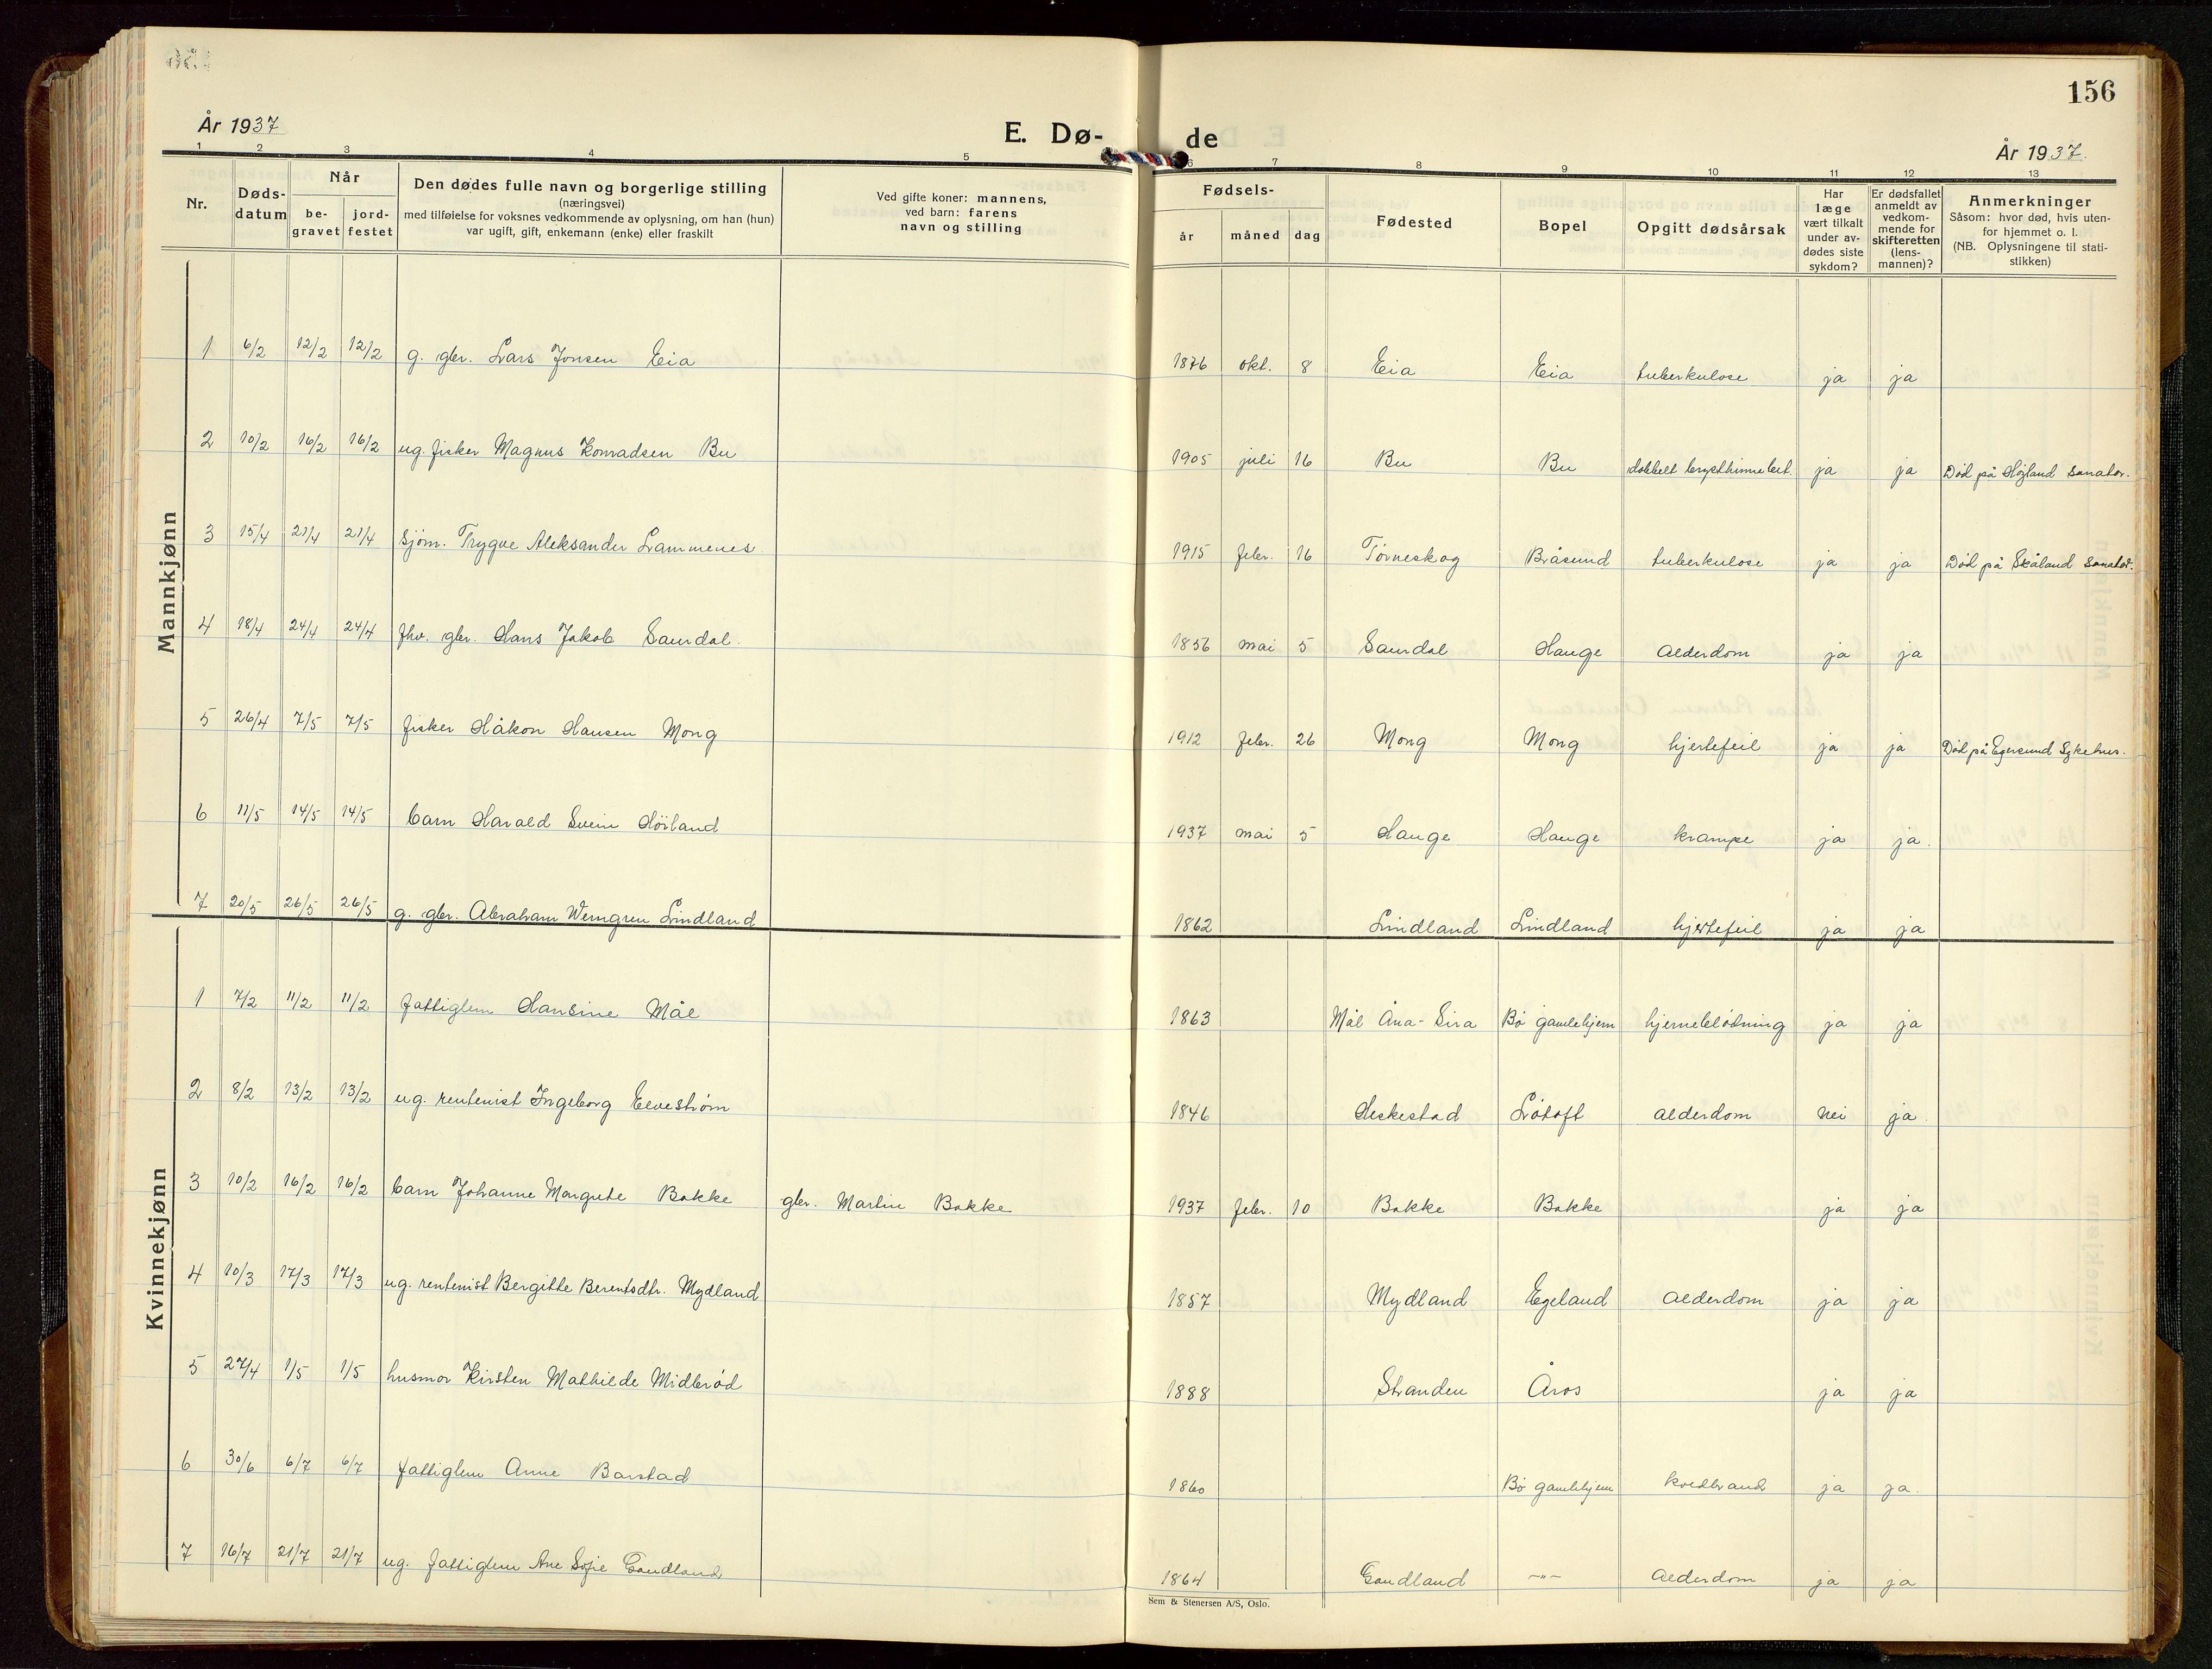 156
År 1937
E. Dø-
de
År 1937.
1 2 3 4 5 6 7 8 9 10 11 12 13
Nr.
Døds-
datum
Når
be-
gravet
jord-
festet
Den dødes fulle navn og borgerlige stilling
(næringsvei)
med tilføielse for voksnes vedkommende av oplysning, om han (hun)
var ugift, gift, enkemann (enke) eller fraskilt
Ved gifte koner: mannens,
ved barn: farens
navn og stilling
Fødsels-
år måned dag
Fødested
Bopel
Opgitt dødsårsak
Har
læge
vært tilkalt
under av-
dødes siste
sykdom?
Er dødsfallet
anmeldt av
vedkom-
mende for
skifteretten
(lens-
mannen)?
Anmerkninger
Såsom: hvor død, hvis uten-
for hjemmet o. l.
(NB. Oplysningene til stati-
stikken)
Mannkjønn
1 6/2 12/2 12/2 g. gbr. Lars Jonsen Eia 1876 okt. 8 Eia Eia tuberkulose ja ja
2 10/2 16/2 16/2 ug. fisker Magnus Konradsen Bu 1905 juli 16 Bu Bu dobbelt brysthinnebet. ja ja Død på Højland sanator.
3 15/4 21/4 21/4 sjøm. Trygve Aleksander Lammenes. 1915 febr. 16 Tørneskog Bråsund tuberkulose ja ja Død på Skåland sanator.
4 18/4 24/4 24/4 fhv. gbr. Hans Jakob Saurdal. 1856 mai 5 Saurdal Hauge Alderdom ja ja
5 26/4 7/5 7/5 fisker Håkon Hansen Mong 1912 febr. 26 Mong Mong hjertefeil ja ja Død på Egersund Sykehus.
6 11/5 14/5 14/5 barn Harald Svein Hörland 1937 mai 5 Hauge Hauge krampe ja ja.
7 20/5 26/5 26/5 g. gbr. Abraham Werngren Lindland 1862 Lindland Lindland hjertefeil ja ja
Kvinnekjønn
1 7/2 11/2 11/2 fattiglem Hansine Mål 1863 Mål Åna-Sira Bø gamlehjem hjerneblødning ja ja
2 8/2 13/2 13/2 ug. rentenist Ingeborg Elvestrøm 1846 Heskestad Løtoft Alderdom nei ja.
3 10/2 16/2 16/2 barn Johanne Margrete Bakke gbr. Martin Bakke 1937 febr. 10 Bakke Bakke ja ja
4 10/3 17/3 17/3 ug. rentenist Bergitte Berentsdtr. Mydland 1857 Mydland Egeland Alderdom ja ja
5 27/4 1/5 1/5 husmor Kirsten Mathilde Midbrød 1888 Stranden Åros ja ja
6 30/6 6/7 6/7 fattiglem Anne Barstad 1860 Bø gamlehjem koldbrand ja ja.
7 16/7 21/7 21/7 ug. fattiglem Ane Sofie Gaudland 1864 Gaudland —"— Alderdom ja ja
Sem & Stenersen A/S, Oslo.